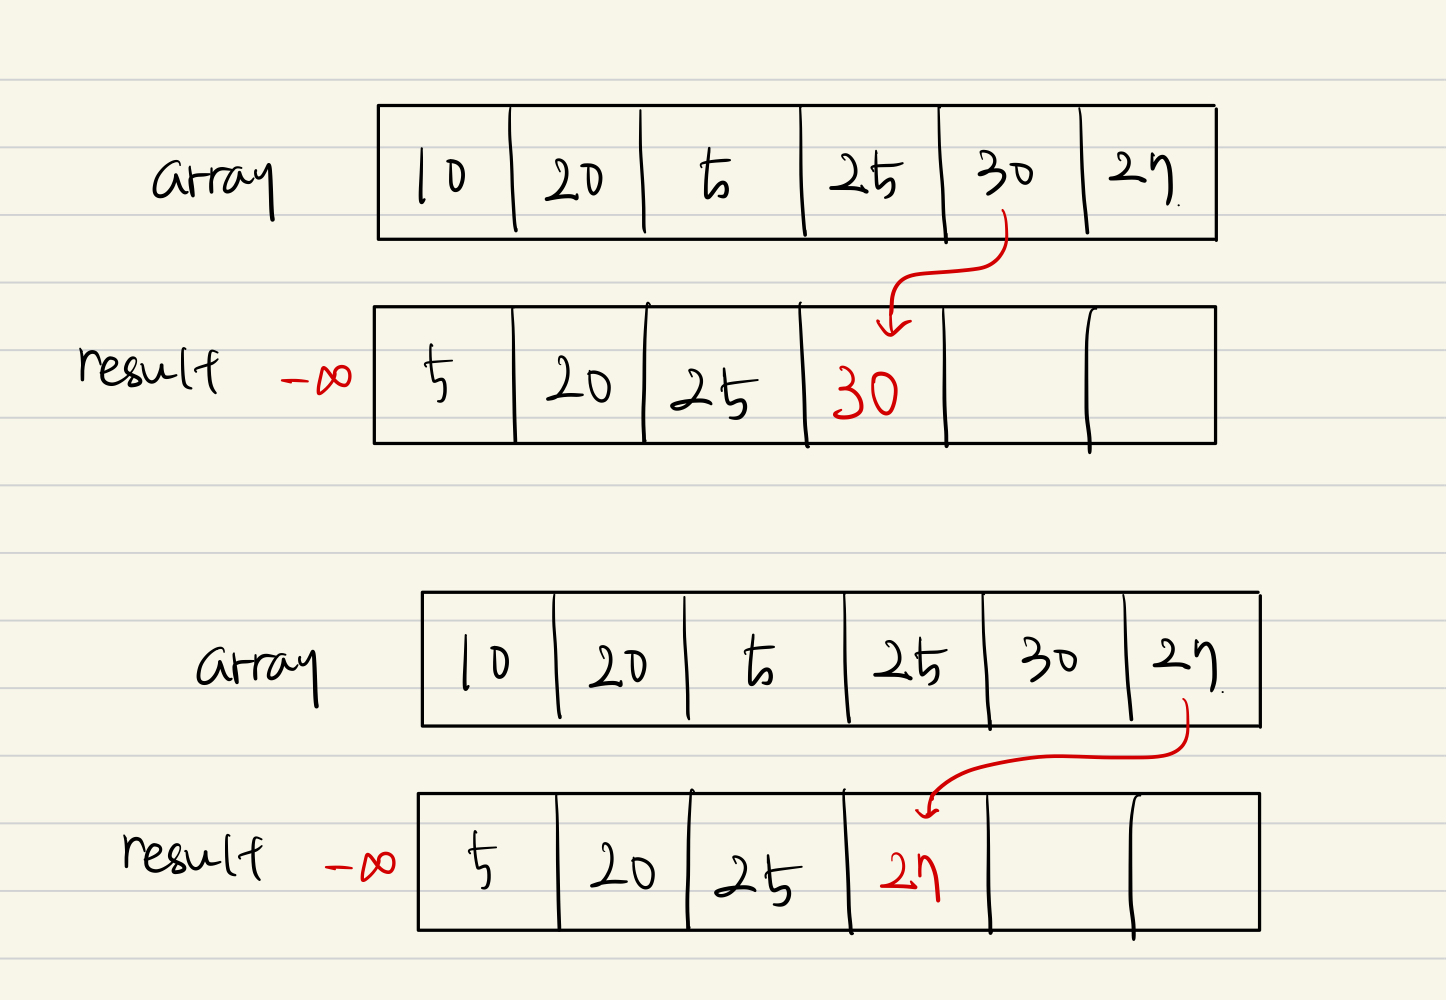 array 10 20 5 25 30 27
result -∞ 5 20 25 30
array 10 20 5 25 30 27
result -∞ 5 20 25 27